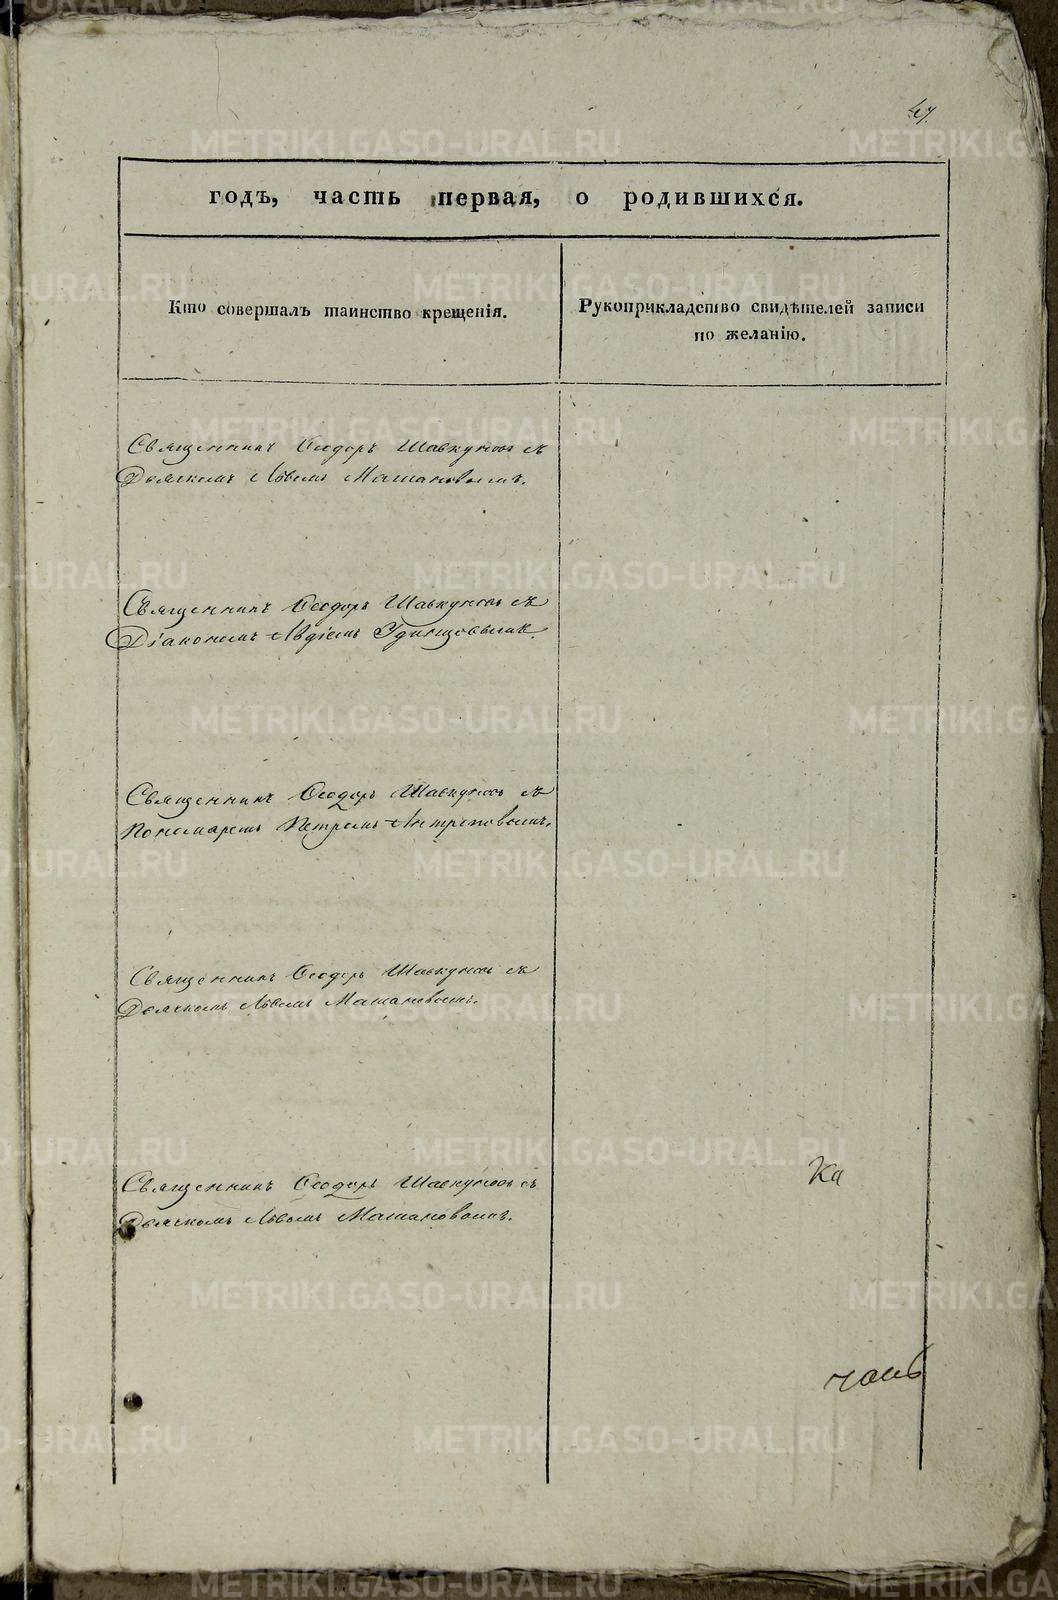 47.
годъ, часть первая, о родившихся.
Кто совершалъ таинство крещенія.
Рукоприкладство свидѣтелей записи
по желанію.
Священникъ Ѳеодоръ Шавкуновъ съ
Дьячкомъ Львомъ Матановымъ.
Священникъ Ѳеодоръ Шавкуновъ съ
Діакономъ Авдіемъ Удинцовымъ.
Священникъ Ѳеодоръ Шавкуновъ съ
Пономаремъ Петромъ Антроповымъ.
Священникъ Ѳеодоръ Шавкуновъ съ
Дьячкомъ Львомъ Матановымъ.
Ка
Священникъ Ѳеодоръ Шавкуновъ съ
Дьячкомъ Львомъ Матановымъ.
METRIKI.GASO-URAL.RU